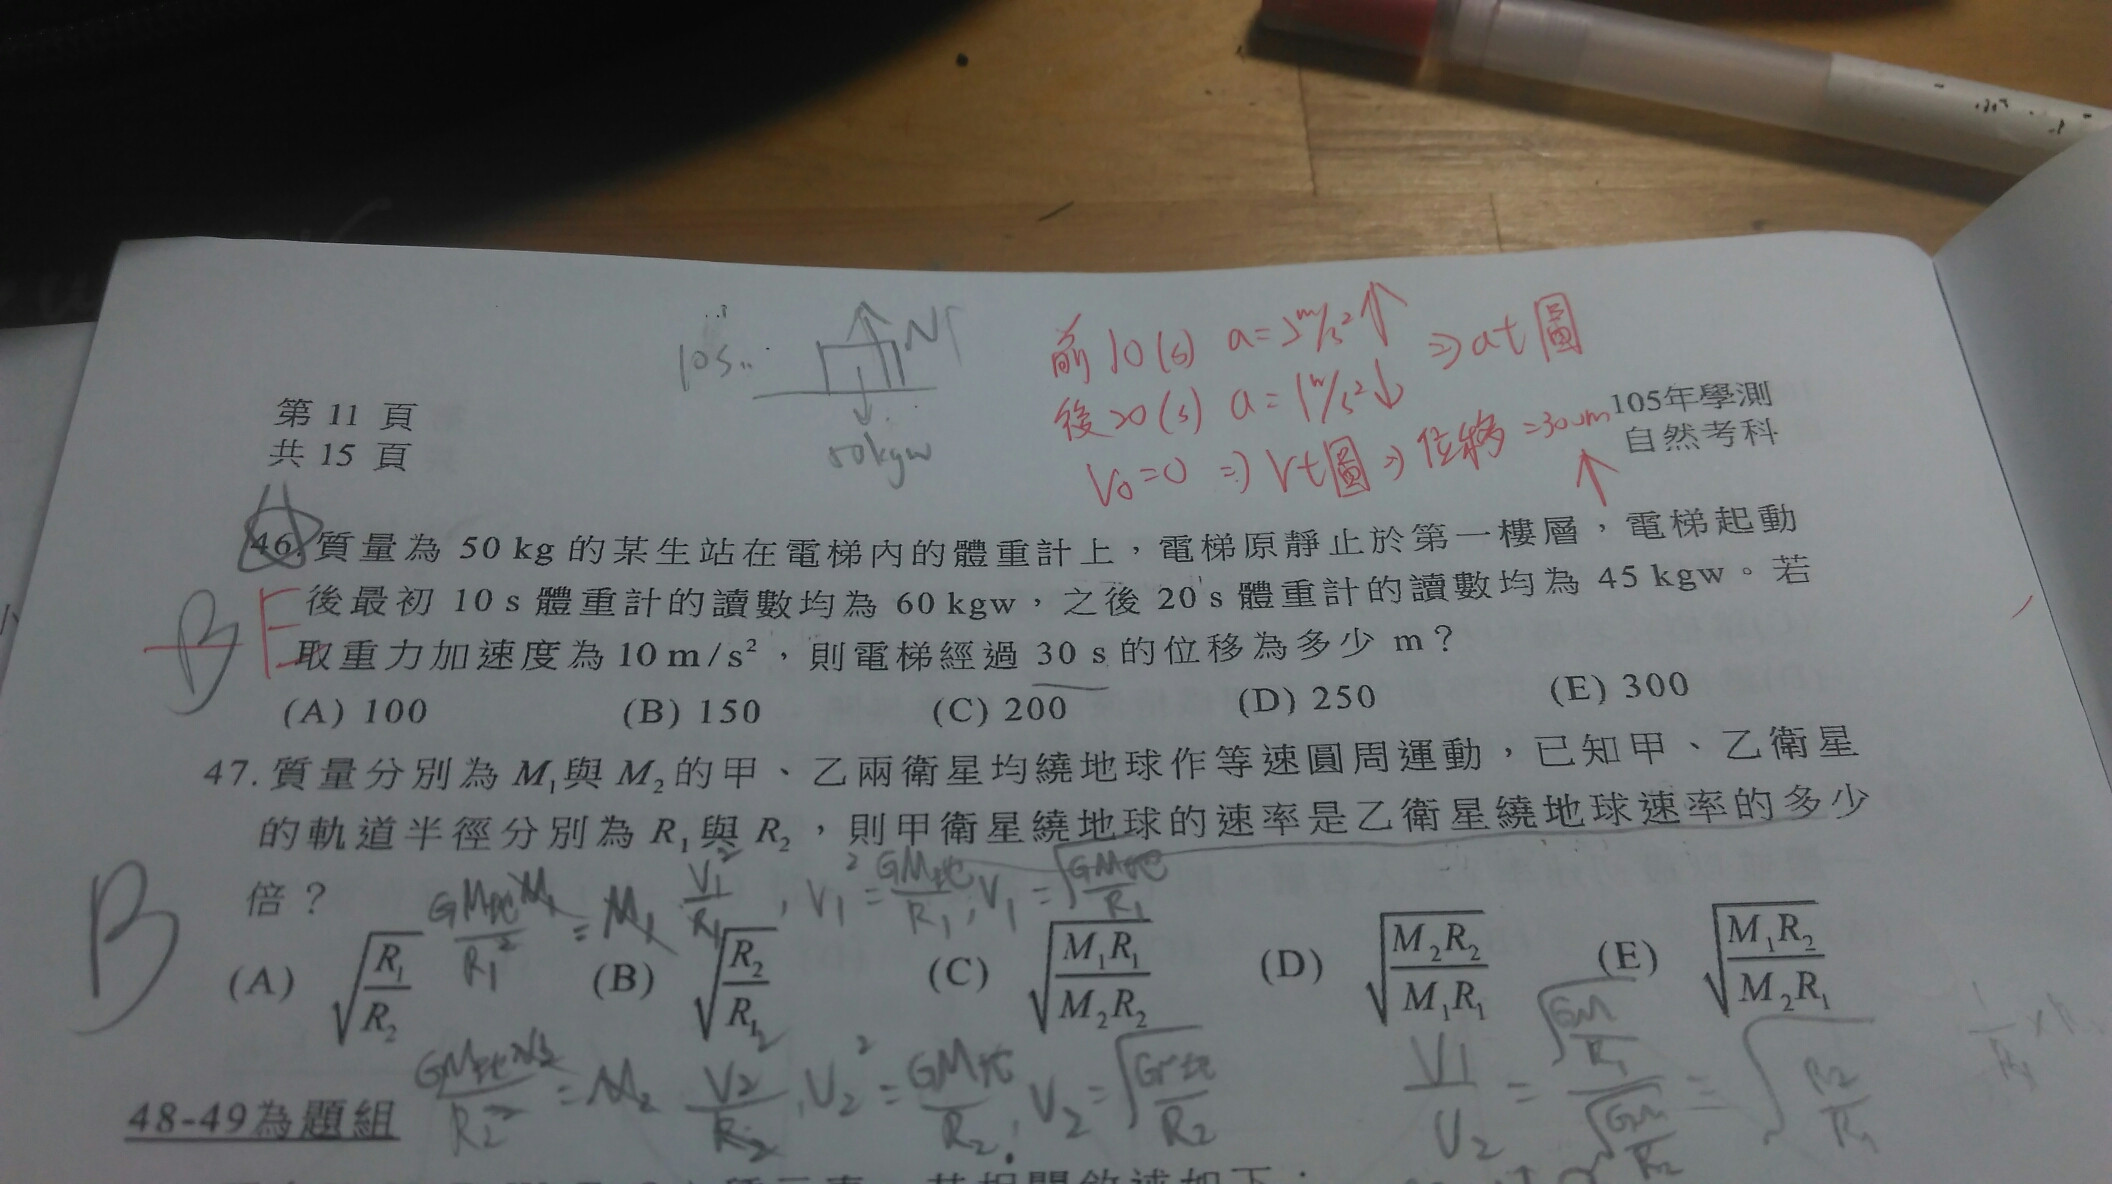 10s
N
50kgw
前10(s) a=2m/s²↑ ⇒ at圖
後20(s) a=1m/s²↓
V₀=0 ⇒ Vt圖 ⇒ 位移=300m↑
第 11 頁
共 15 頁
105年學測
自然考科
46. 質量為 50 kg 的某生站在電梯內的體重計上，電梯原靜止於第一樓層，電梯起動
B E 後最初 10 s 體重計的讀數均為 60 kgw，之後 20 s 體重計的讀數均為 45 kgw。若
取重力加速度為 10 m/s²，則電梯經過 30 s 的位移為多少 m？
(A) 100 (B) 150 (C) 200 (D) 250 (E) 300
47. 質量分別為 M₁與 M₂的甲、乙兩衛星均繞地球作等速圓周運動，已知甲、乙衛星
的軌道半徑分別為 R₁與 R₂，則甲衛星繞地球的速率是乙衛星繞地球速率的多少
倍？
GM地M₁/R₁² = M₁ V₁²/R₁, V₁² = GM地/R₁, V₁ = √(GM地/R₁)
B
(A) √(R₁/R₂) (B) √(R₂/R₁) (C) √(M₁R₁/M₂R₂) (D) √(M₂R₂/M₁R₁) (E) √(M₁R₂/M₂R₁)
GM地M₂/R₂² = M₂ V₂/R₂, V₂² = GM地/R₂, V₂ = √(GM地/R₂)
V₁/V₂ = √(GM/R₁)/√(GM/R₂) = √(R₂/R₁)
48-49為題組